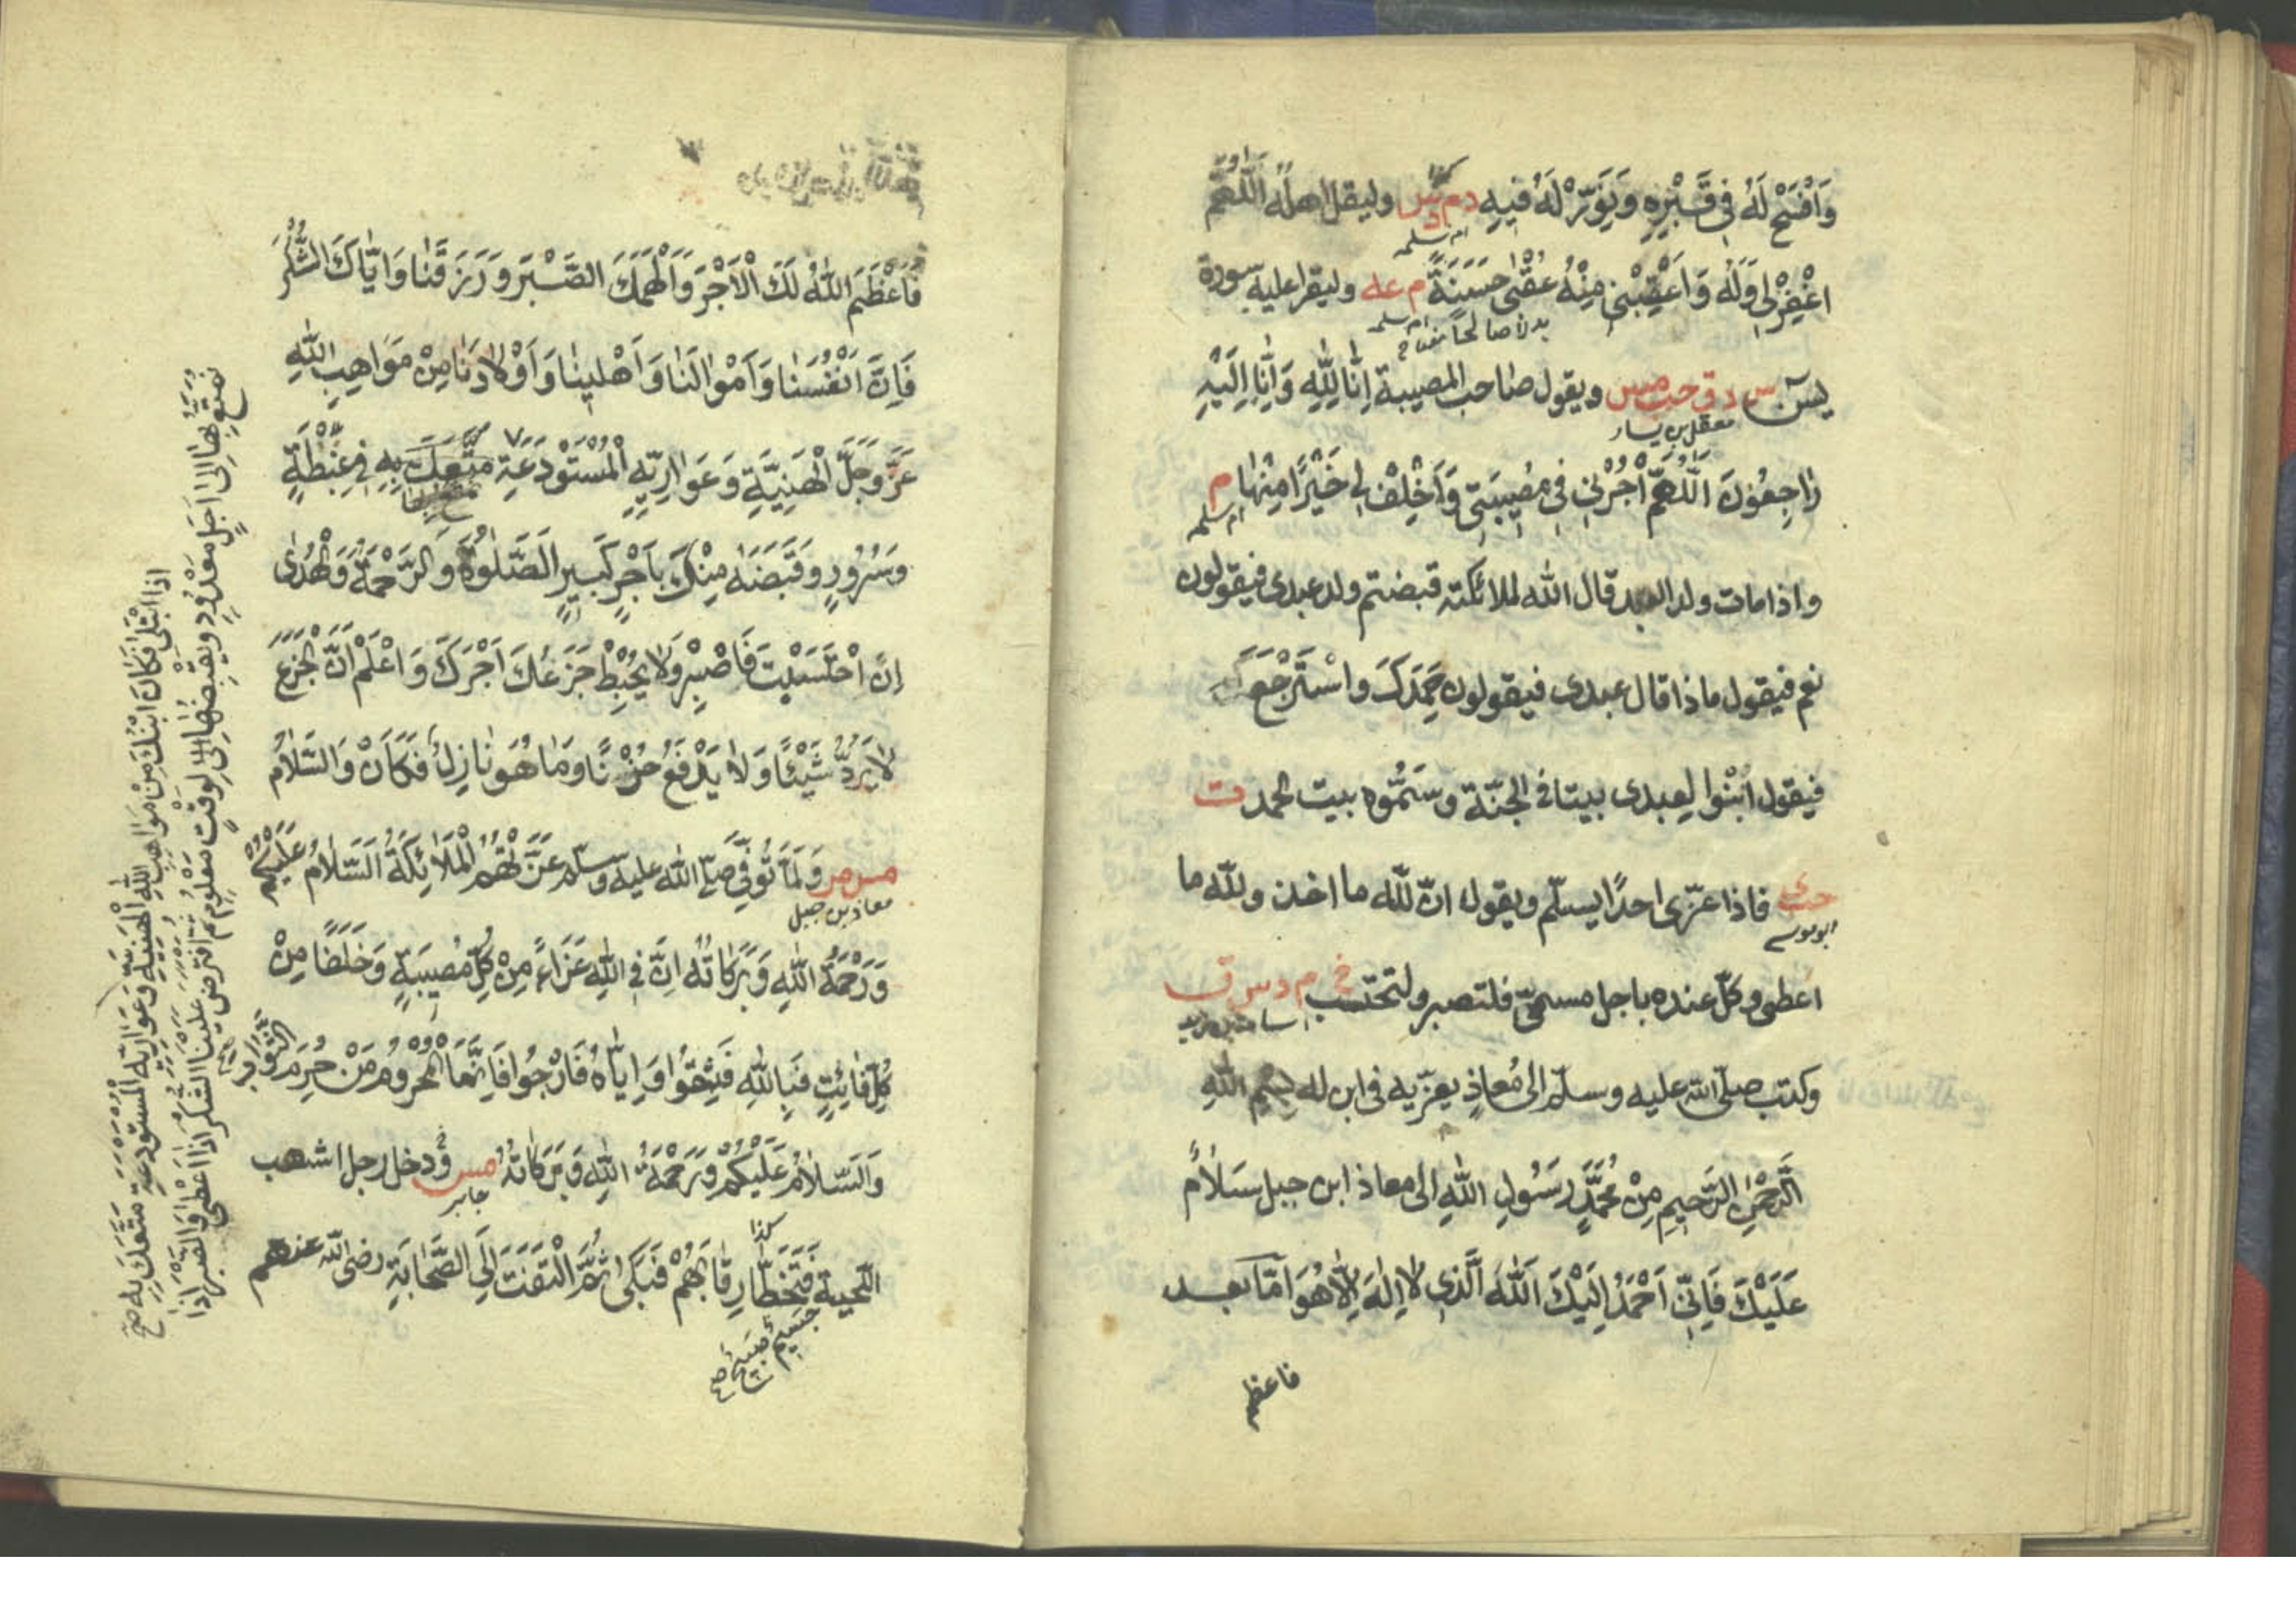 وَافْسَحْ لَهُ فِي قَبْرِهِ وَنَوِّرْ لَهُ فِيهِ م د س وليقل اهله اَللّٰهُمَّ
ام سلمه
اغْفِرْ لِي وَلَهُ وَاَعْقِبْنِي مِنْهُ عُقْبٰى حَسَنَةً م عه وليقرا عليه سورة
ام سلمه
يسٓ س د ق حب مس ويقول صاحب المصيبة اِنَّا لِلّٰهِ وَاِنَّا اِلَيْهِ
معقل بن يسار
رَاجِعُوْنَ اَللّٰهُمَّ اْجُرْنِي فِي مُصِيبَتِي وَاَخْلِفْ لِي خَيْرًا مِنْهَا م
ام سلمه
واذا مات ولد العبد قال الله لملائكته قبضتم ولد عبدى فيقولون
نعم فيقول ماذا قال عبدى فيقولون حَمِدَكَ وَاسْتَرْجَعَ
فيقول ابْنُوا لِعبدى بيتا فى الجنّة وسَمُّوه بيت الحمد ت
حب ى فاذا عزّى احدًا يسلّم ويقول انّ لِلّٰه ما اخذ ولِلّٰه ما
ابو موسى
اعطى وكلّ عنده باجل مسمّى فلتصبر ولتحتسب خ م د س ق
اسامة بن زيد
وكتب صلّى الله عليه وسلّم الى مُعاذٍ يعزّيه فى ابن له بِسْمِ اللّٰهِ
الرَّحْمٰنِ الرَّحِيمِ مِنْ مُحَمَّدٍ رَسُولِ اللّٰهِ الى معاذ ابن جبل سَلَامٌ
عَلَيْكَ فَاِنِّي اَحْمَدُ اِلَيْكَ اللّٰهَ الَّذِي لَا اِلٰهَ اِلَّا هُوَ اَمَّا بعد
فاعظم
فَاَعْظَمَ اللّٰهُ لَكَ الْاَجْرَ وَاَلْهَمَكَ الصَّبْرَ وَرَزَقَنَا وَاِيَّاكَ الشُّكْرَ
فَاِنَّ اَنْفُسَنَا وَاَمْوَالَنَا وَاَهْلِينَا وَاَوْلَادَنَا مِنْ مَوَاهِبِ اللّٰهِ
عَزَّ وَجَلَّ الْهَنِيَّةِ وَعَوَارِيِّهِ الْمُسْتَوْدَعَةِ مَتَّعَكَ بِهِ فِي غِبْطَةٍ
وَسُرُورٍ وَقَبَضَهُ مِنْكَ بِاَجْرٍ كَبِيرٍ اَلصَّلٰوةُ وَالرَّحْمَةُ وَالْهُدٰى
اِنْ احْتَسَبْتَ فَاصْبِرْ وَلَا يُحْبِطْ جَزَعُكَ اَجْرَكَ وَاعْلَمْ اَنَّ الْجَزَعَ
لَا يَرُدُّ شَيْئًا وَلَا يَدْفَعُ حُزْنًا وَمَا هُوَ نَازِلٌ فَكَاَنْ وَالسَّلَامُ
مس مر وَلَمَّا تُوُفِّيَ صلّى الله عليه وسلّم عَزَّتْهُمُ الْمَلَائِكَةُ اَلسَّلَامُ عَلَيْكُمْ
معاذ بن جبل
وَرَحْمَةُ اللّٰهِ وَبَرَكَاتُهُ اِنَّ فِي اللّٰهِ عَزَاءً مِنْ كُلِّ مُصِيبَةٍ وَخَلَفًا مِنْ
كُلِّ فَائِتٍ فَبِاللّٰهِ فَثِقُوا وَاِيَّاهُ فَارْجُوا فَاِنَّمَا الْمَحْرُومُ مَنْ حُرِمَ الثَّوَابَ
وَالسَّلَامُ عَلَيْكُمْ وَرَحْمَةُ اللّٰهِ وَبَرَكَاتُهُ مس وَدخل رجل اشهب
جابر
اللحية فَتَخَطَّا رِقَابَهُمْ فَبَكٰى ثُمَّ الْتَفَتَ اِلَى الصَّحَابَةِ رضى الله عنهم
كذا
جسيم صبيح
نمتع بها الى اَجَلٍ مَعْدُودٍ ويقبضها الى لوقت معلوم ثم افترض علينا الشكر اذا اعطى والصبر اذا
اذا ابتلى فكان ابنك من مواهب الله الهنيّة وعواريه المستودعة متّعك به صح